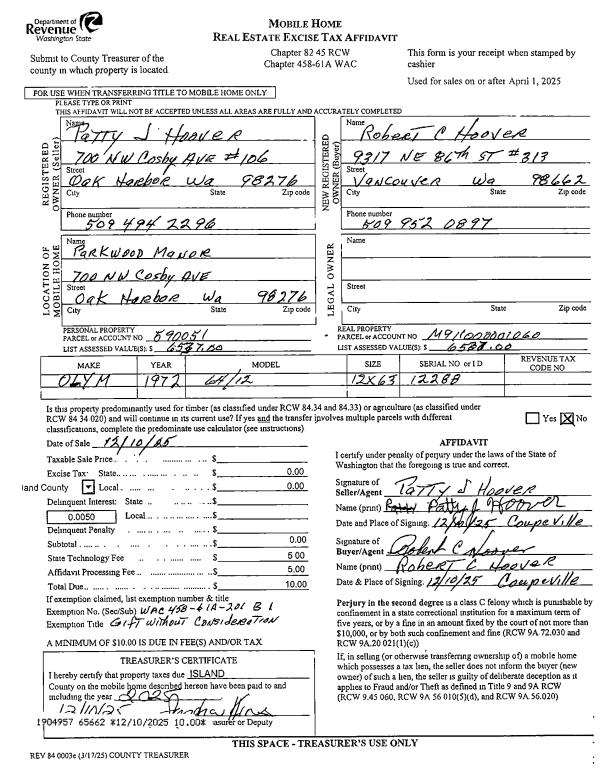 Department of
Revenue
Washington State
MOBILE HOME
REAL ESTATE EXCISE TAX AFFIDAVIT
Submit to County Treasurer of the
county in which property is located
Chapter 82 45 RCW
Chapter 458-61A WAC
This form is your receipt when stamped by
cashier
Used for sales on or after April 1, 2025
FOR USE WHEN TRANSFERRING TITLE TO MOBILE HOME ONLY
PLEASE TYPE OR PRINT
THIS AFFIDAVIT WILL NOT BE ACCEPTED UNLESS ALL AREAS ARE FULLY AND ACCURATELY COMPLETED
REGISTERED OWNER (Seller)
Name
Patty J Hoover
700 NW Cosby Ave #106
Street
Oak Harbor Wa 98276
City State Zip code
Phone number
509 494 2296
NEW REGISTERED OWNER (Buyer)
Name
Robert C Hoover
9317 NE 86th ST #313
Street
Vancouver Wa 98662
City State Zip code
Phone number
509 952 0897
LOCATION OF MOBILE HOME
Name
Parkwood Manor
700 NW Cosby Ave
Street
Oak Harbor Wa 98276
City State Zip code
LEGAL OWNER
Name
Street
City State Zip code
PERSONAL PROPERTY
PARCEL or ACCOUNT NO 690051
LIST ASSESSED VALUE(S) $ 6587.00
REAL PROPERTY
PARCEL or ACCOUNT NO
LIST ASSESSED VALUE(S) $ 6587.00
MAKE YEAR MODEL SIZE SERIAL NO or I D REVENUE TAX CODE NO
OLYM 1972 64/12 12X63 12288
Is this property predominantly used for timber (as classified under RCW 84.34 and 84.33) or agriculture (as classified under
RCW 84 34 020) and will continue in its current use? If yes and the transfer involves multiple parcels with different
classifications, complete the predominate use calculator (see instructions)
Yes X No
Date of Sale 12/10/25
Taxable Sale Price $
Excise Tax State $ 0.00
land County Local $ 0.00
Delinquent Interest: State $
0.0050 Local $
Delinquent Penalty $
Subtotal $ 0.00
State Technology Fee $ 5 00
Affidavit Processing Fee $ 5.00
Total Due $ 10.00
If exemption claimed, list exemption number & title
Exemption No. (Sec/Sub) WAC 458-61A-201 B 1
Exemption Title Gift without Consideration
A MINIMUM OF $10.00 IS DUE IN FEE(S) AND/OR TAX
TREASURER'S CERTIFICATE
I hereby certify that property taxes due ISLAND
County on the mobile home described hereon have been paid to and
including the year 2025
12/10/25
1904957 65662 *12/10/2025 10.00* asurer or Deputy
AFFIDAVIT
I certify under penalty of perjury under the laws of the State of
Washington that the foregoing is true and correct.
Signature of
Seller/Agent Patty J Hoover
Name (print) Patty J Hoover
Date and Place of Signing. 12/10/25 Coupeville
Signature of
Buyer/Agent Robert C Hoover
Name (print) Robert C Hoover
Date & Place of Signing. 12/10/25 Coupeville
Perjury in the second degree is a class C felony which is punishable by
confinement in a state correctional institution for a maximum term of
five years, or by a fine in an amount fixed by the court of not more than
$10,000, or by both such confinement and fine (RCW 9A.72.030 and
RCW 9A.20 021(1)(c))
If, in selling (or otherwise transferring ownership of) a mobile home
which possesses a tax lien, the seller does not inform the buyer (new
owner) of such a lien, the seller is guilty of deliberate deception as it
applies to Fraud and/or Theft as defined in Title 9 and 9A RCW
(RCW 9.45 060, RCW 9A 56 010(5)(d), and RCW 9A.56.020)
THIS SPACE - TREASURER'S USE ONLY
REV 84 0003e (3/17/25) COUNTY TREASURER